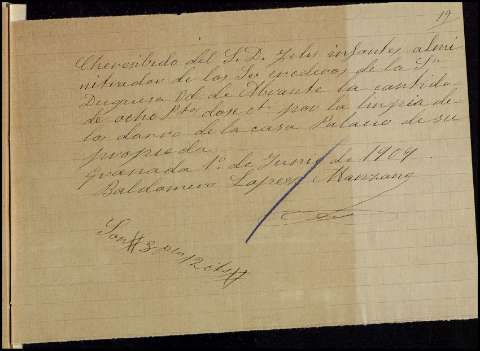 19
Cherrecibido del S. D. Felis infantes almi
nitrador de los Sres erederos de la Sra
Duquesa Vda de Abrante la cantida
de ocho Pts dose cts por la linpia de
los darros de la casa Palacio de su
propieda
Granada 1º de Junio de 1909
Baldomero Lopez Manzano
Son # 8 Pts 12 cts #